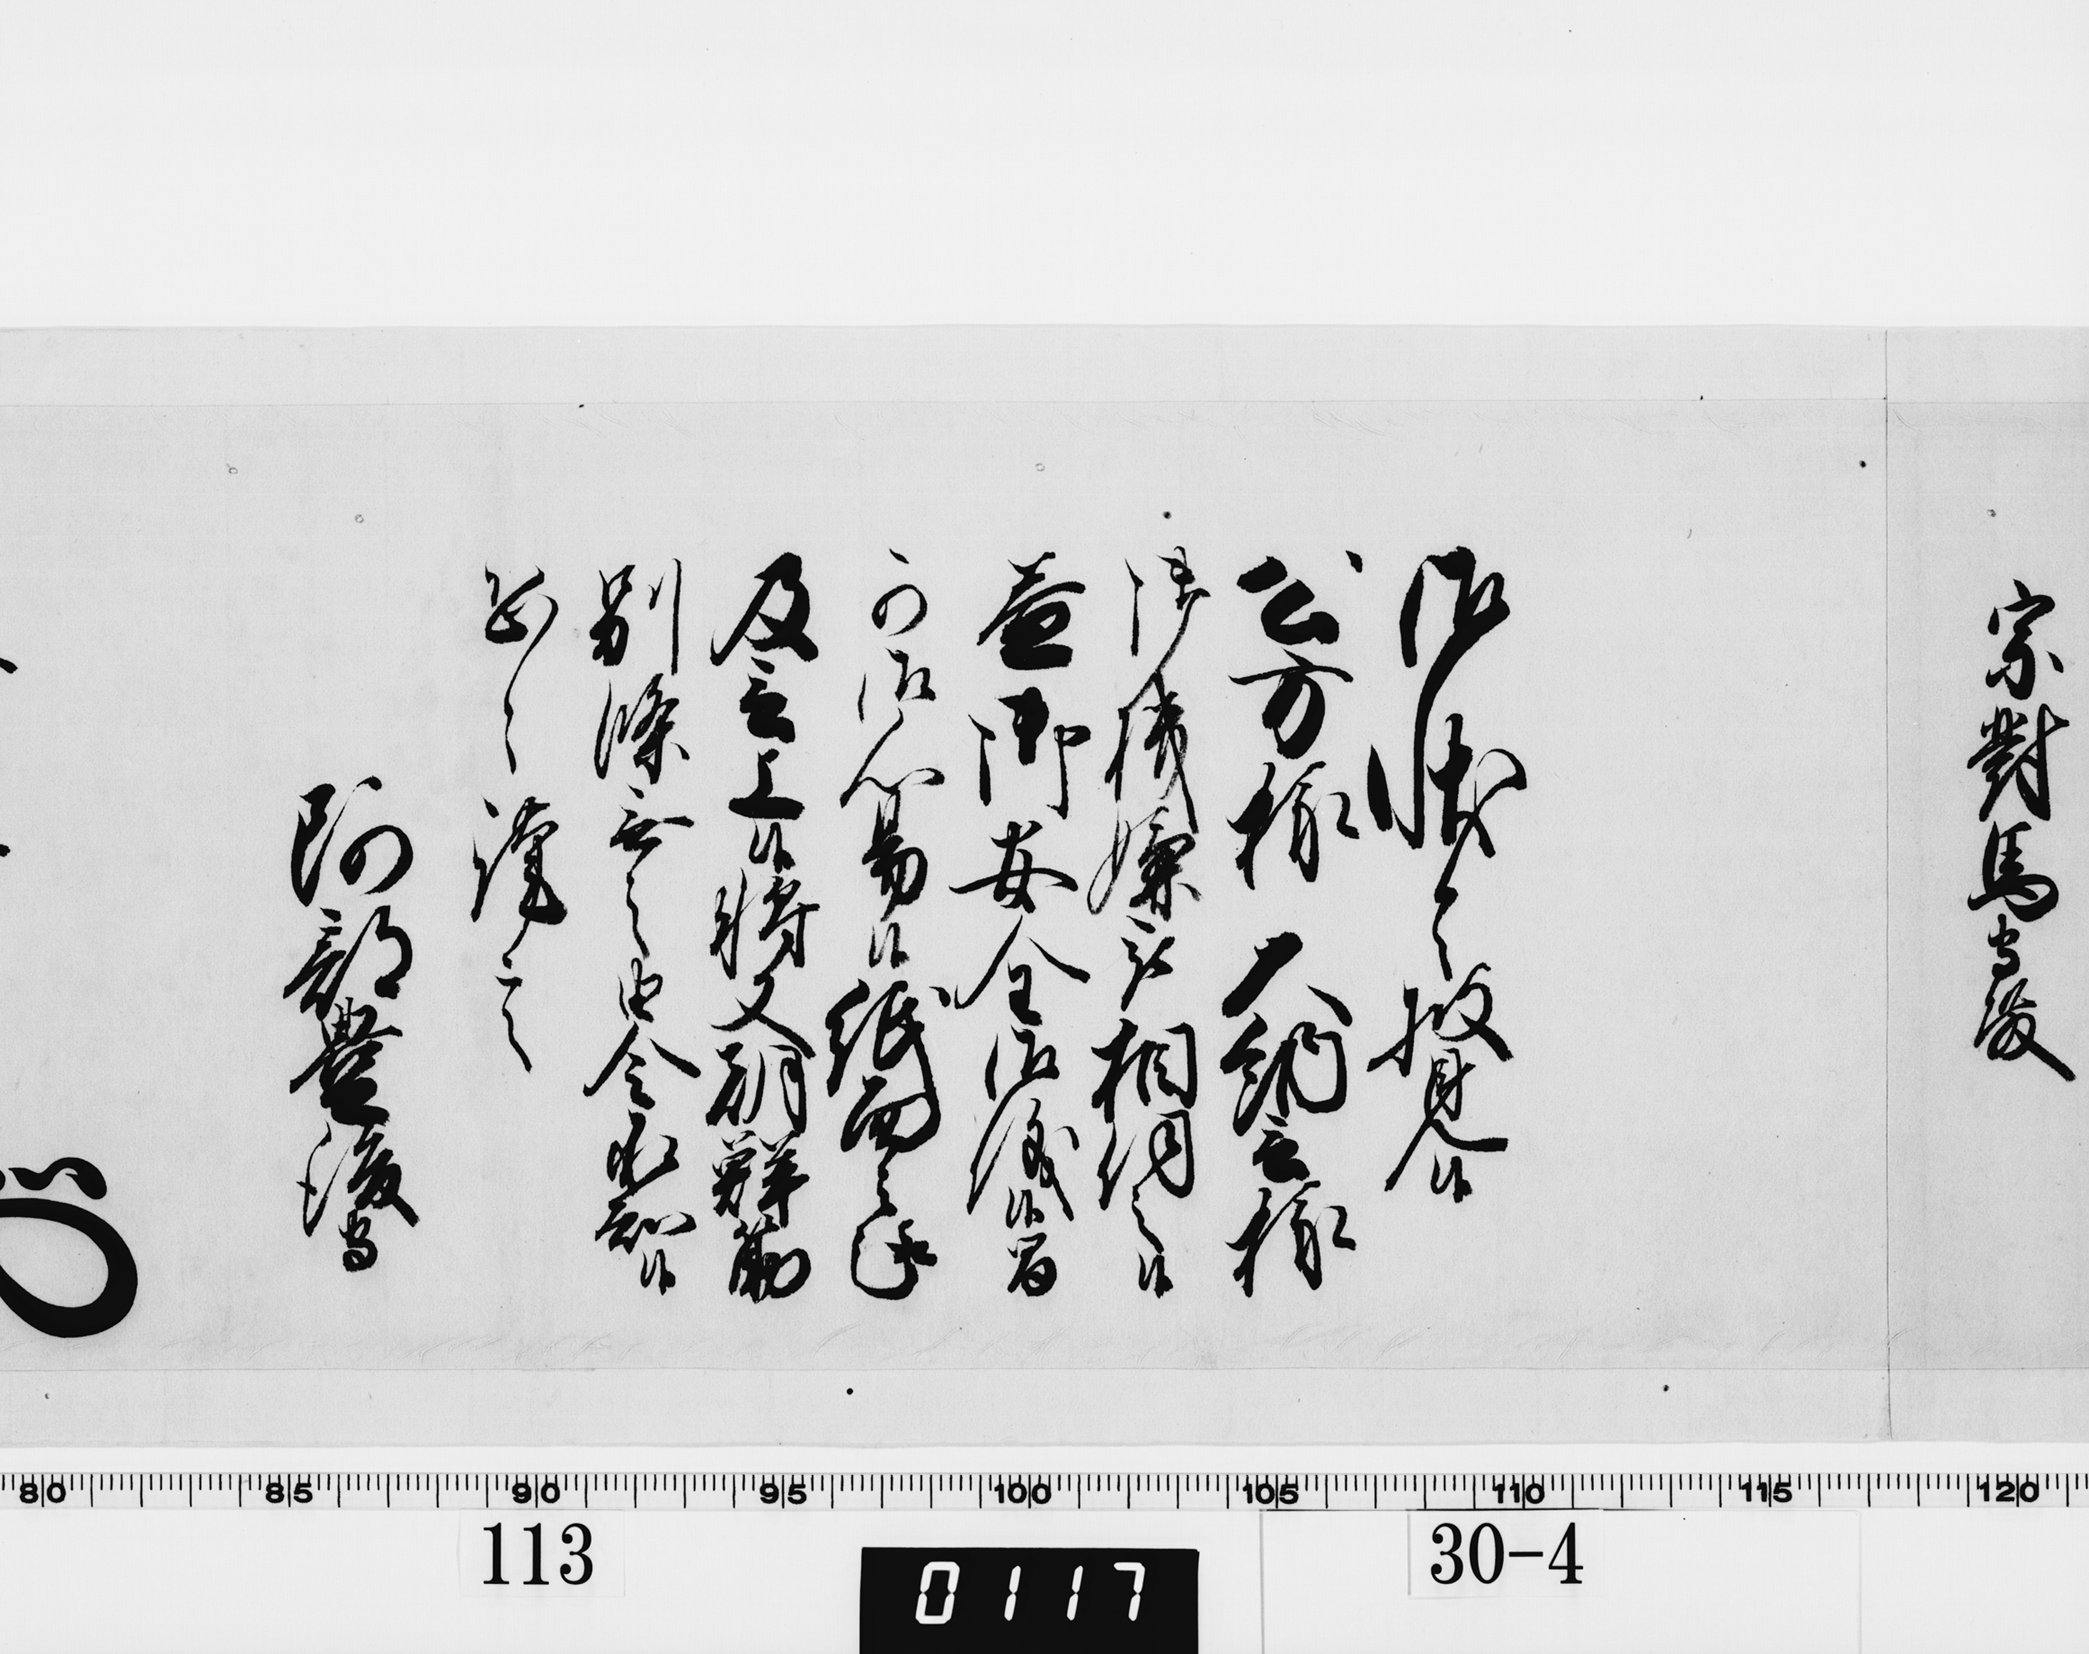 宗對馬守殿
御状令披見候
公方様 大納言様
御機嫌被相伺之候
益御安全御儀候間
可御心易候紙面之趣
及言上候将又朝鮮筋
別條無之由令承知候
恐々謹言
阿部豊後守
80 85 90 95 100 105 110 115 120
113
30-4
0117